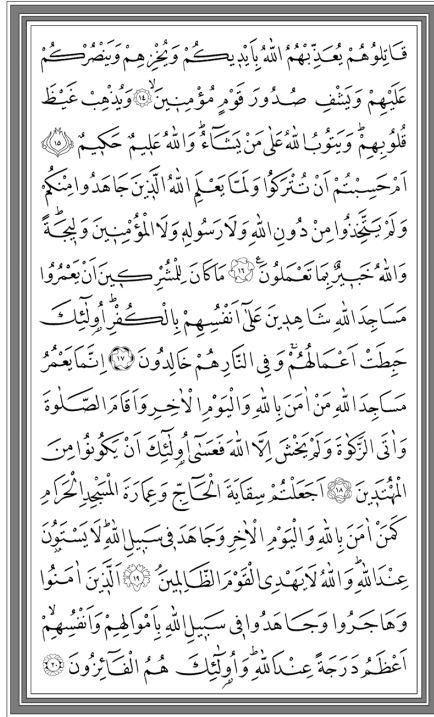 قَاتِلُوهُمْ يُعَذِّبْهُمُ اللّٰهُ بِاَيْدِيكُمْ وَيُخْزِهِمْ وَيَنْصُرْكُمْ
عَلَيْهِمْ وَيَشْفِ صُدُورَ قَوْمٍ مُؤْمِنِينَۙ ﴿١٤﴾ وَيُذْهِبْ غَيْظَ
قُلُوبِهِمْۜ وَيَتُوبُ اللّٰهُ عَلٰى مَنْ يَشَٓاءُۜ وَاللّٰهُ عَلِيمٌ حَكِيمٌ ﴿١٥﴾
اَمْ حَسِبْتُمْ اَنْ تُتْرَكُوا وَلَمَّا يَعْلَمِ اللّٰهُ الَّذِينَ جَاهَدُوا مِنْكُمْ
وَلَمْ يَتَّخِذُوا مِنْ دُونِ اللّٰهِ وَلَا رَسُولِهِ وَلَا الْمُؤْمِنِينَ وَلِيجَةًۜ
وَاللّٰهُ خَبِيرٌ بِمَا تَعْمَلُونَ۟ ﴿١٦﴾ مَا كَانَ لِلْمُشْرِكِينَ اَنْ يَعْمُرُوا
مَسَاجِدَ اللّٰهِ شَاهِدِينَ عَلٰٓى اَنْفُسِهِمْ بِالْكُفْرِۜ اُو۬لٰٓئِكَ
حَبِطَتْ اَعْمَالُهُمْۚ وَفِي النَّارِ هُمْ خَالِدُونَ ﴿١٧﴾ اِنَّمَا يَعْمُرُ
مَسَاجِدَ اللّٰهِ مَنْ اٰمَنَ بِاللّٰهِ وَالْيَوْمِ الْاٰخِرِ وَاَقَامَ الصَّلٰوةَ
وَاٰتَى الزَّكٰوةَ وَلَمْ يَخْشَ اِلَّا اللّٰهَ فَعَسٰٓى اُو۬لٰٓئِكَ اَنْ يَكُونُوا مِنَ
الْمُهْتَدِينَ ﴿١٨﴾ اَجَعَلْتُمْ سِقَايَةَ الْحَٓاجِّ وَعِمَارَةَ الْمَسْجِدِ الْحَرَامِ
كَمَنْ اٰمَنَ بِاللّٰهِ وَالْيَوْمِ الْاٰخِرِ وَجَاهَدَ فِي سَبِيلِ اللّٰهِۜ لَا يَسْتَوُ۫نَ
عِنْدَ اللّٰهِۜ وَاللّٰهُ لَا يَهْدِي الْقَوْمَ الظَّالِمِينَۢ ﴿١٩﴾ اَلَّذِينَ اٰمَنُوا
وَهَاجَرُوا وَجَاهَدُوا فِي سَبِيلِ اللّٰهِ بِاَمْوَالِهِمْ وَاَنْفُسِهِمْۙ
اَعْظَمُ دَرَجَةً عِنْدَ اللّٰهِۜ وَاُو۬لٰٓئِكَ هُمُ الْفَٓائِزُونَ ﴿٢٠﴾